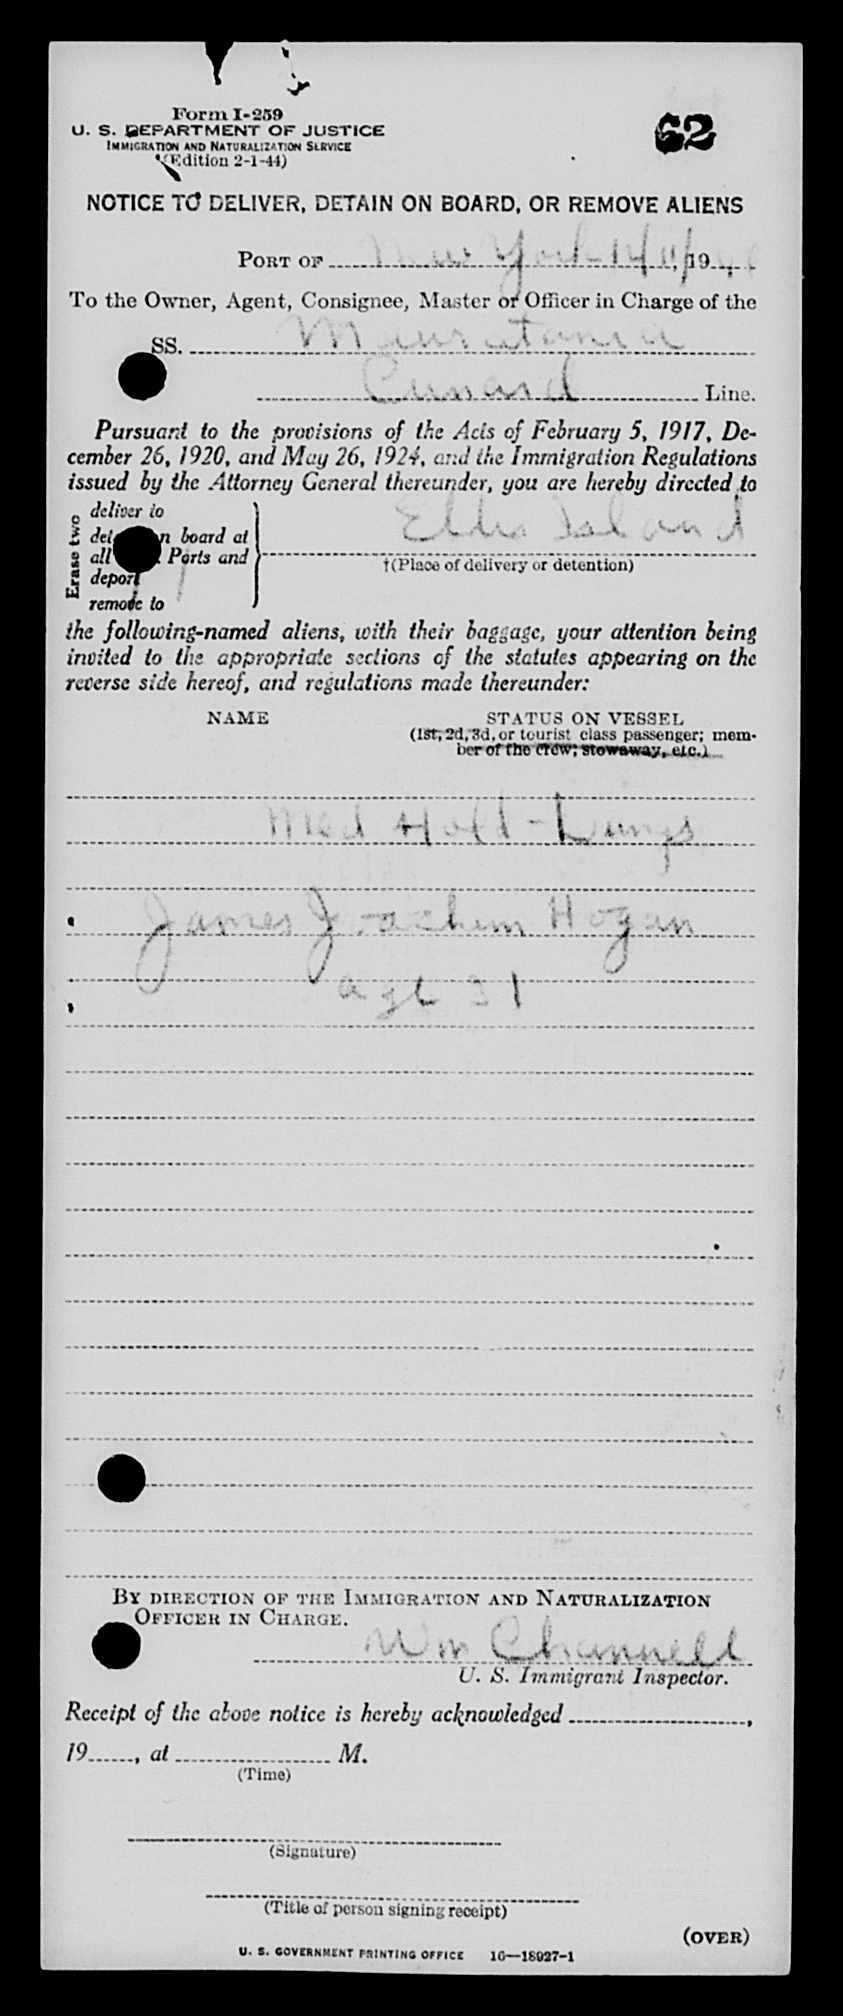 Form I-259
U. S. DEPARTMENT OF JUSTICE
IMMIGRATION AND NATURALIZATION SERVICE
(Edition 2-1-44)
62
NOTICE TO DELIVER, DETAIN ON BOARD, OR REMOVE ALIENS
PORT OF New York 19
To the Owner, Agent, Consignee, Master or Officer in Charge of the
SS. Mauretania
Cunard Line.
Pursuant to the provisions of the Acts of February 5, 1917, De-
cember 26, 1920, and May 26, 1924, and the Immigration Regulations
issued by the Attorney General thereunder, you are hereby directed to
Erase two
deliver to
board at
all Ports and
deport
remove to
Ellis Island
†(Place of delivery or detention)
the following-named aliens, with their baggage, your attention being
invited to the appropriate sections of the statutes appearing on the
reverse side hereof, and regulations made thereunder:
NAME STATUS ON VESSEL
(1st, 2d, 3d, or tourist class passenger; mem-
ber of the crew; stowaway, etc.)
Med Hold - Lungs
James Joachim Hogan
age 31
BY DIRECTION OF THE IMMIGRATION AND NATURALIZATION
OFFICER IN CHARGE.
Wm Channell
U. S. Immigrant Inspector.
Receipt of the above notice is hereby acknowledged ,
19 , at M.
(Time)
(Signature)
(Title of person signing receipt)
(OVER)
U. S. GOVERNMENT PRINTING OFFICE 16—18027-1